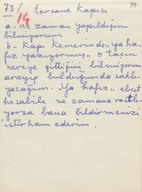 73/ Tersane Kapısı 74
14
a. ne zaman yapıldığını
bilmiyorum
b - kapı kemerinde "ya ha-
fız yazıyormuş" o taşın
nereye gittiğini bilmiyorum
arayıp bulduğumda sakla-
yacağım. Ya hafız, ebcet
hesabile ne zamana rastlı-
yorsa bana bildirmenizi
istirham ederim.